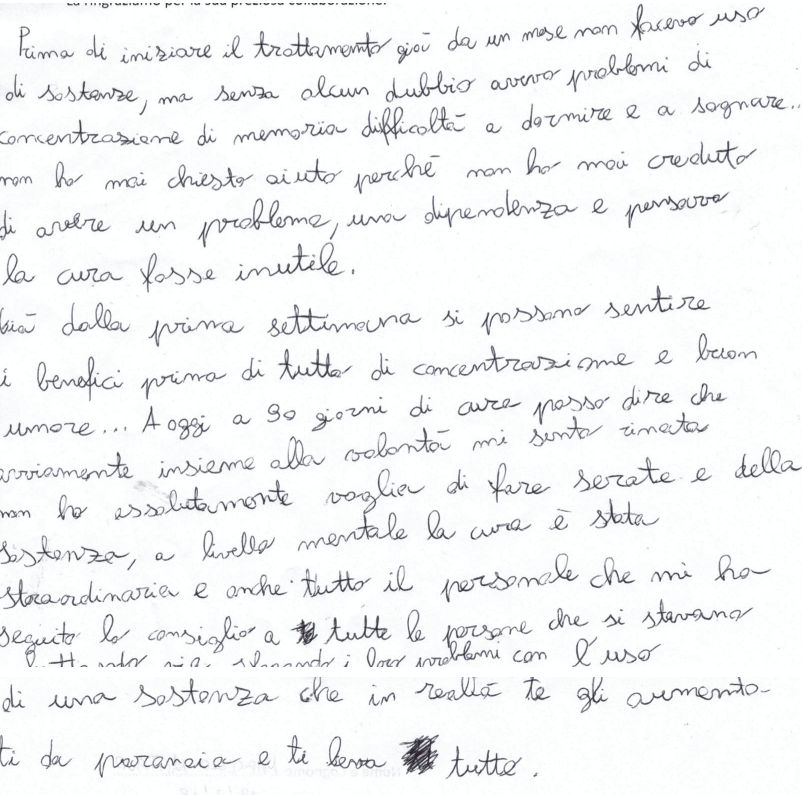 La ringraziamo per la sua preziosa collaborazione.
Prima di iniziare il trattamento già da un mese non facevo uso
di sostanze, ma senza alcun dubbio avevo problemi di
concentrazione di memoria difficoltà a dormire e a sognare...
non ho mai chiesto aiuto perché non ho mai creduto
di avere un problema, una dipendenza e pensavo
la cura fosse inutile.
già dalla prima settimana si possono sentire
i benefici prima di tutto di concentrazione e buon
umore... A oggi a 30 giorni di cura posso dire che
ovviamente insieme alla volontà mi sento rinata
non ho assolutamente voglia di fare serate e della
sostanza, a livello mentale la cura è stata
straordinaria e anche tutto il personale che mi ha
seguito lo consiglio a tutte le persone che si stavano
buttando via, sfogando i loro problemi con l'uso
di una sostanza che in realtà te gli aumenta
ti da paranoia e ti leva tutto.